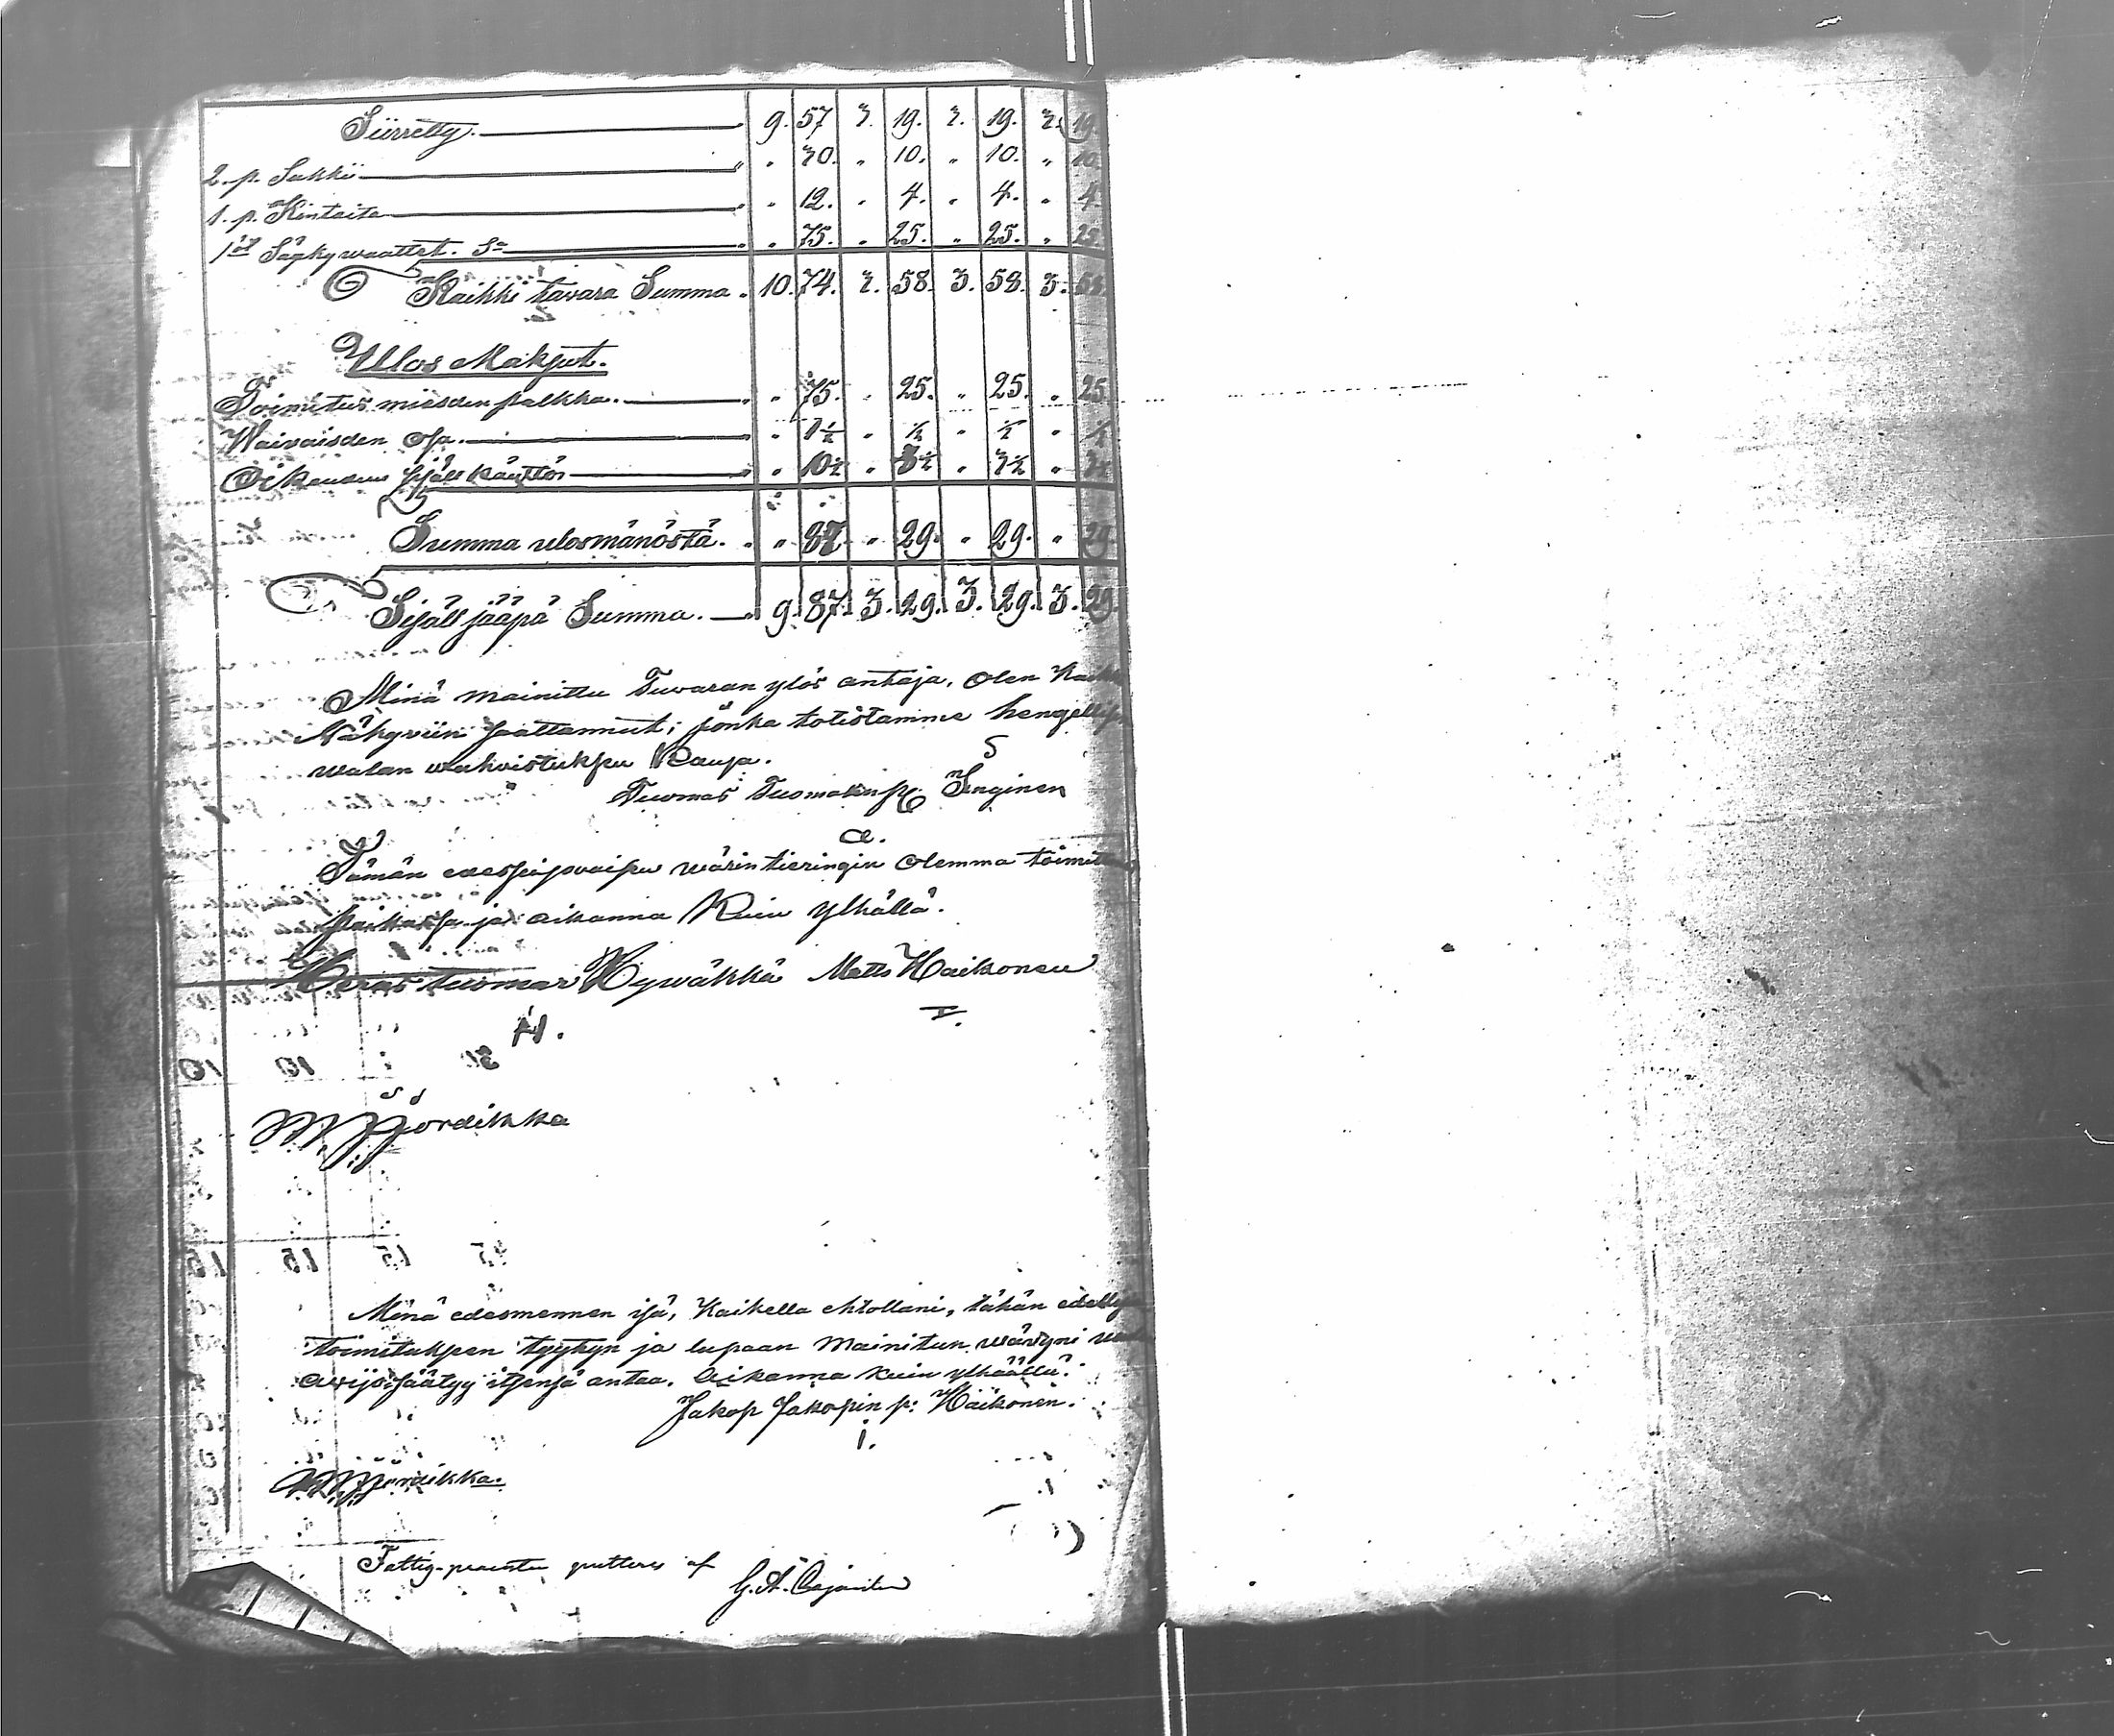 Siirretty. 9. 57 3. 19. 3. 19. 3. 19.
2. p. Sukkii " " 30. " 10. " 10. " 10
1. p. Kintaita " " 12. " 4. " 4. " 4.
1 Sängkywaattet. S= " " 75. " 25. " 25. " 25.
Kaikki tavara Summa. 10. 74. 3. 58. 3. 58. 3. 58.
Ulos Maksut.
Toimitus miesden palkka. " " 75. " 25. " 25. " 25.
Waivaisden osa. " " 1½ " ½ " ½ " ½
Oikeuden sisäll käyttös " " 10½ " 3½ " 3½ " 3½
Summa ulosmänöstä. " " 87. " 29. " 29. " 29.
Sisäll jääpä Summa. 9. 87. 3. 29. 3. 29. 3. 29.
Minä mainittu Tuvaran ylös antaja, olen
Näkyviin saattannut; jonka totistamme
walan wahvistuksu Kaupa.
Tuomas Tuomakin p: Inginen
Tämän wärintieringin olemma
paikassa ja aikanna Kuiu ylhällä.
Tuomas Hywäkkä Matts Haikonen
H. I.
M Pjordikka
Minä edesmennen isä, Kaikella ehtollani, tähän
toimituksen tyytyn ja lupaan mainitun
itsensä antaa. Aikanna kuin ylhäällä.
Jakop Jakopin p: Haikonen.
i.
M Pjordikka.
Fattig-procenten quitteres af
G. A. Cajander